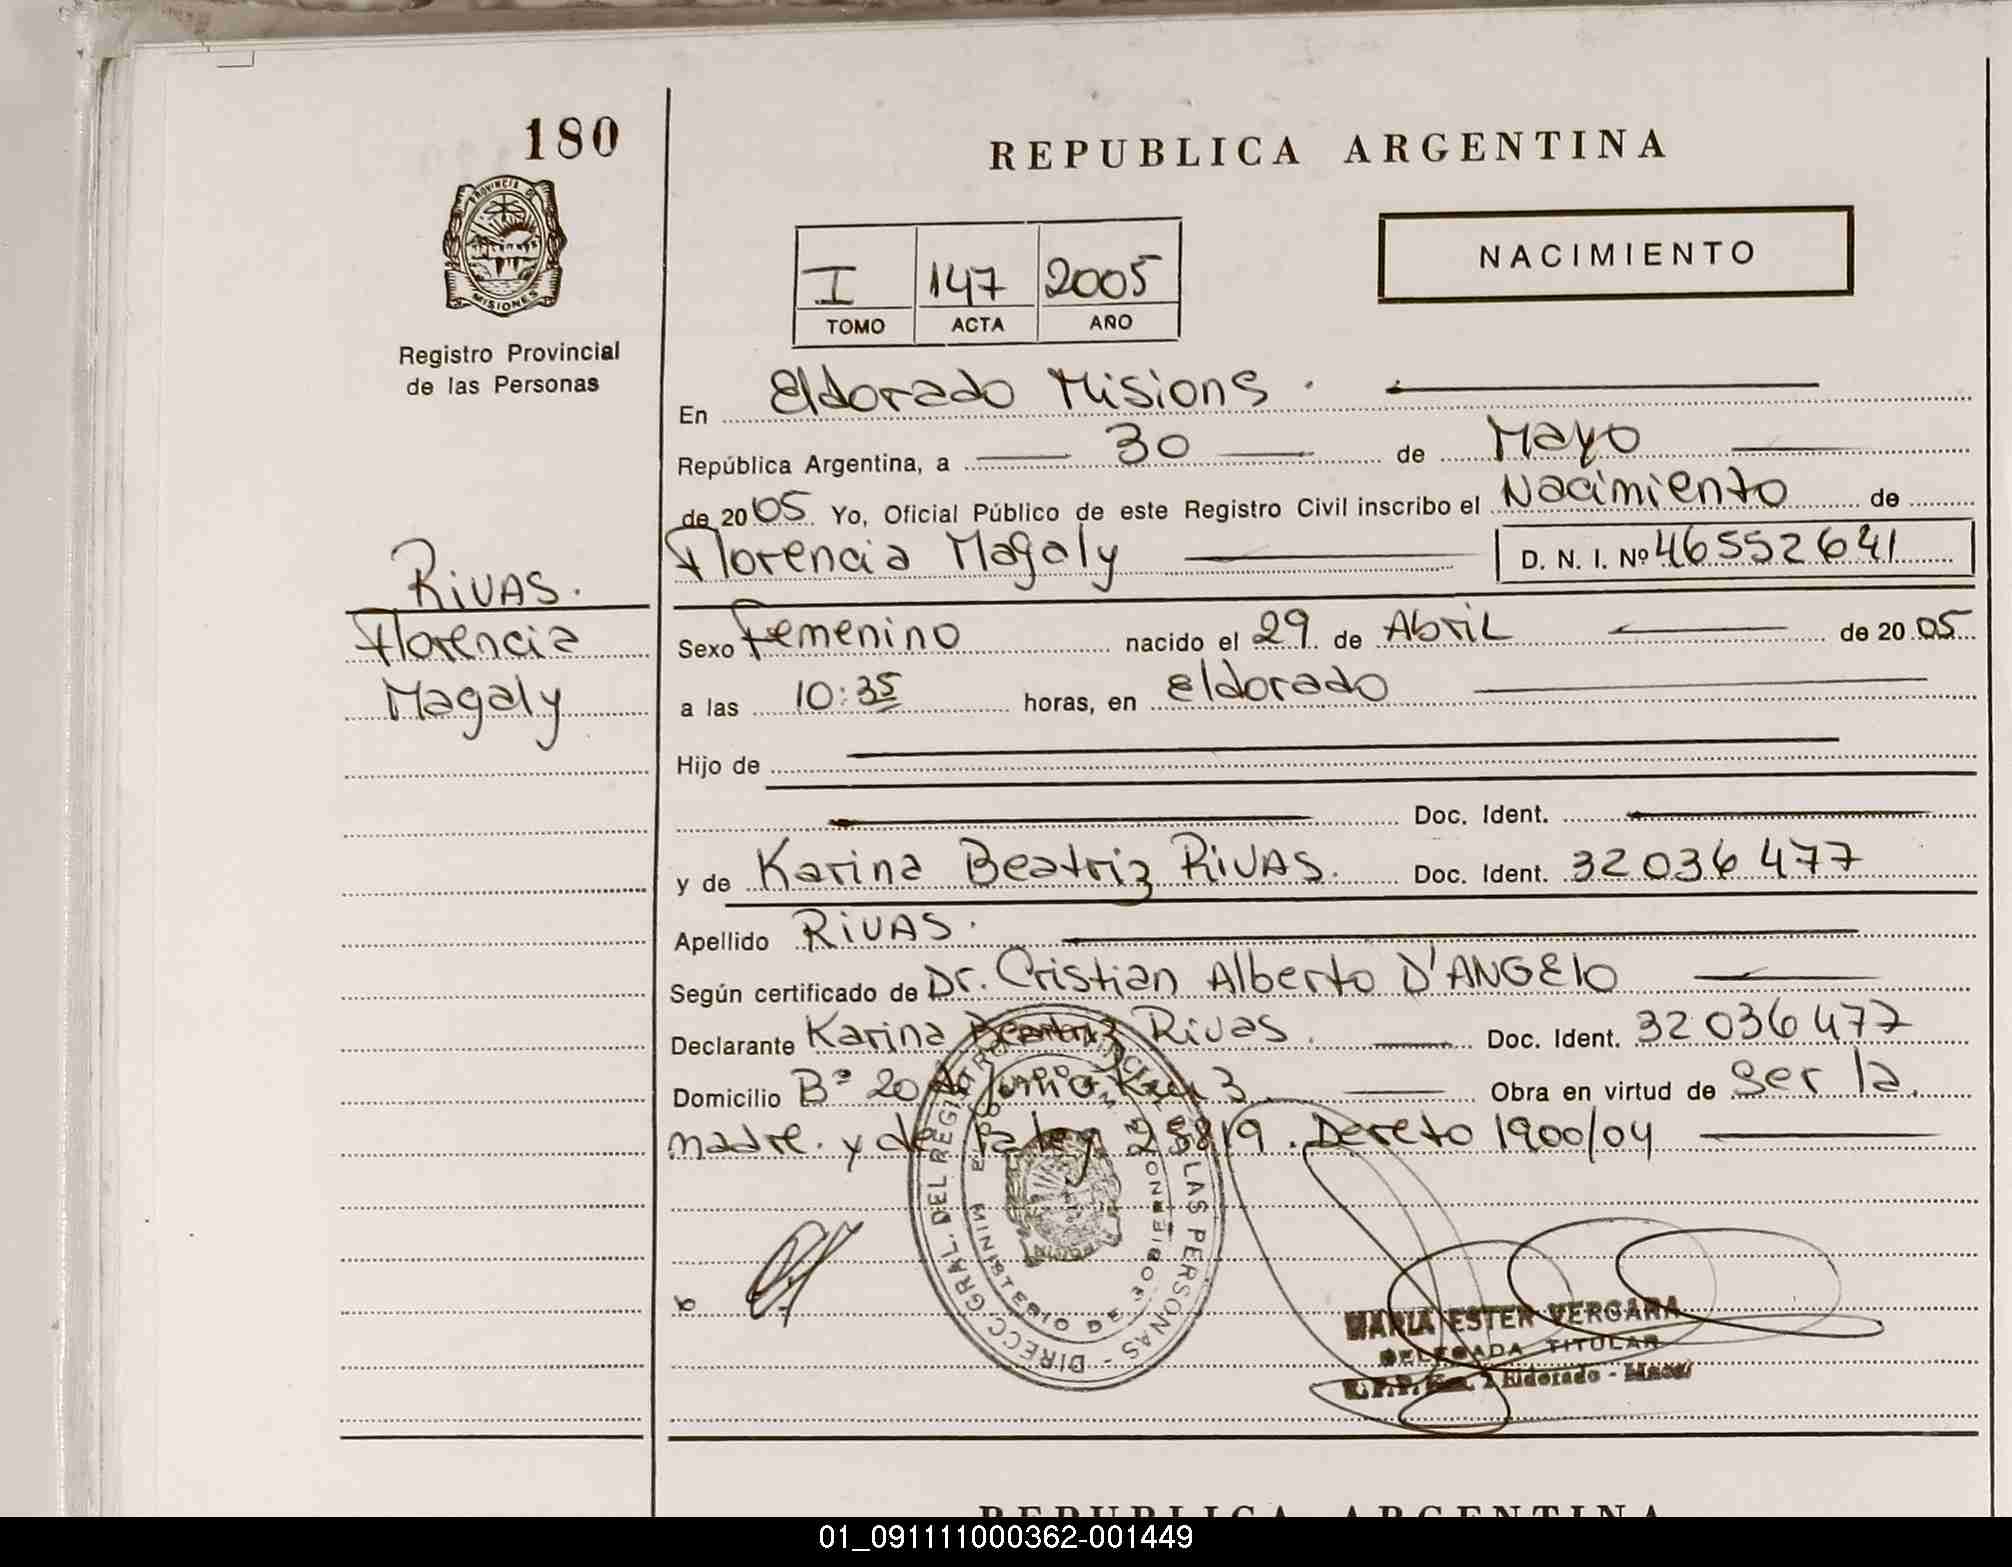 180
REPUBLICA ARGENTINA
PROVINCIA DE
MISIONES
Registro Provincial
de las Personas
I 147 2005
TOMO ACTA AÑO
NACIMIENTO
En Eldorado Misions.
República Argentina, a 30 de Mayo
de 2005 Yo, Oficial Público de este Registro Civil inscribo el Nacimiento de
Florencia Magaly D. N. I. Nº 46552641
RIVAS.
Florencia
Magaly
Sexo Femenino nacido el 29 de Abril de 2005
a las 10:35 horas, en eldorado
Hijo de
Doc. Ident.
y de Karina Beatriz RIVAS. Doc. Ident. 32036477
Apellido RIVAS.
Según certificado de Dr. Cristian Alberto D'ANGElO
Declarante Karina Beatriz Rivas. Doc. Ident. 32036477
Domicilio Bº 20 de Junio Km 3 Obra en virtud de ser la
madre. y de la ley 25819. Dereto 1900/04
DIRECC. GRAL. DEL REGISTRO PROVINCIAL DE LAS PERSONAS
MINISTERIO DE GOBIERNO
MARIA ESTER VERGARA
DELEGADA TITULAR
Eldorado
REPUBLICA ARGENTINA
01_091111000362-001449